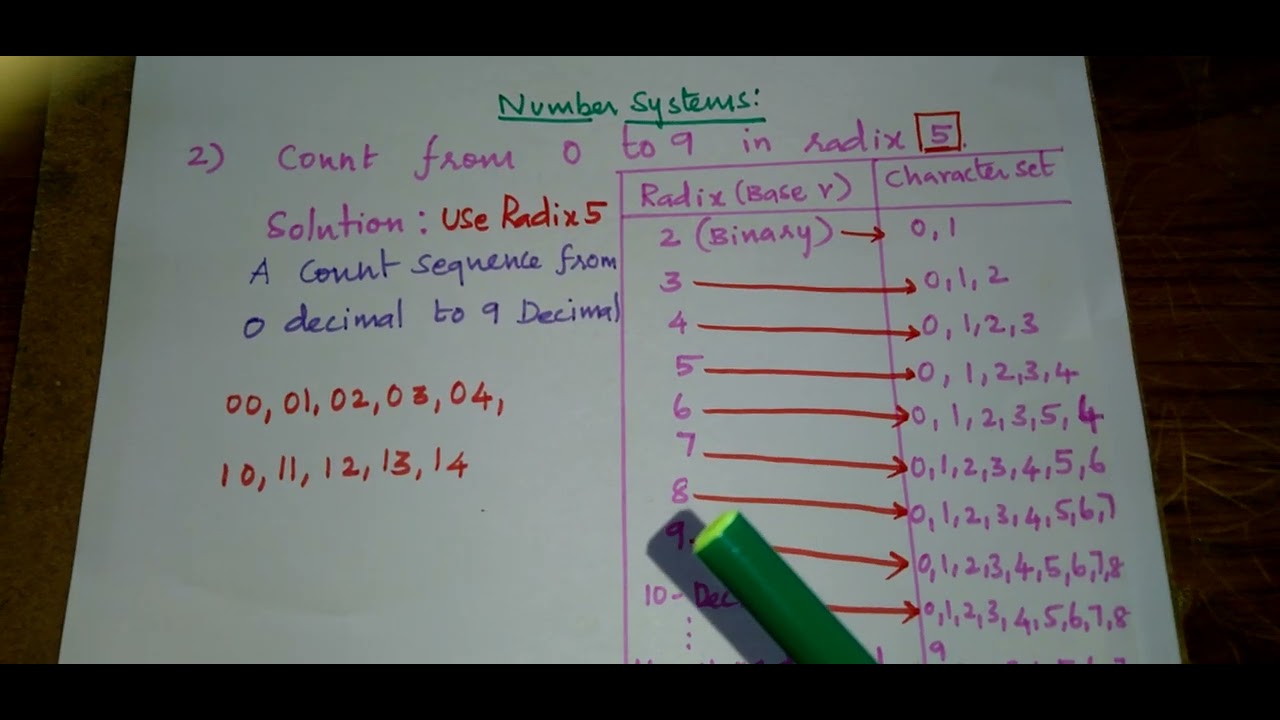 Number Systems:
2) Count from 0 to 9 in radix 5.
Solution: Use Radix 5
A Count sequence from
0 decimal to 9 Decimal
00, 01, 02, 03, 04,
10, 11, 12, 13, 14
Radix (Base r) Character set
2 (Binary) → 0, 1
3 → 0, 1, 2
4 → 0, 1, 2, 3
5 → 0, 1, 2, 3, 4
6 → 0, 1, 2, 3, 5, 4
7 → 0, 1, 2, 3, 4, 5, 6
8 → 0, 1, 2, 3, 4, 5, 6, 7
9 → 0, 1, 2, 3, 4, 5, 6, 7, 8
10 - → 0, 1, 2, 3, 4, 5, 6, 7, 8
9